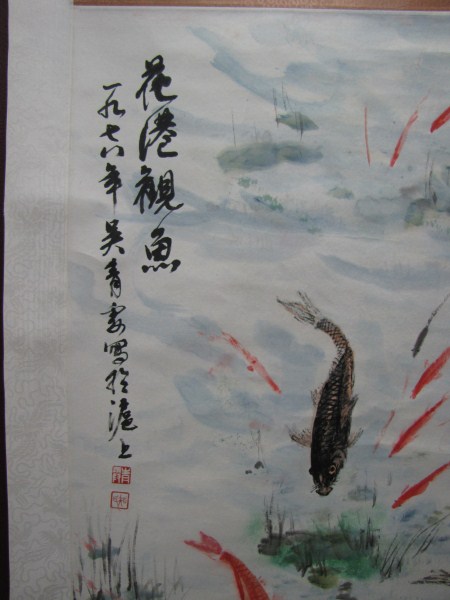 花港觀魚
一九七八年吴青霞寫於滬上